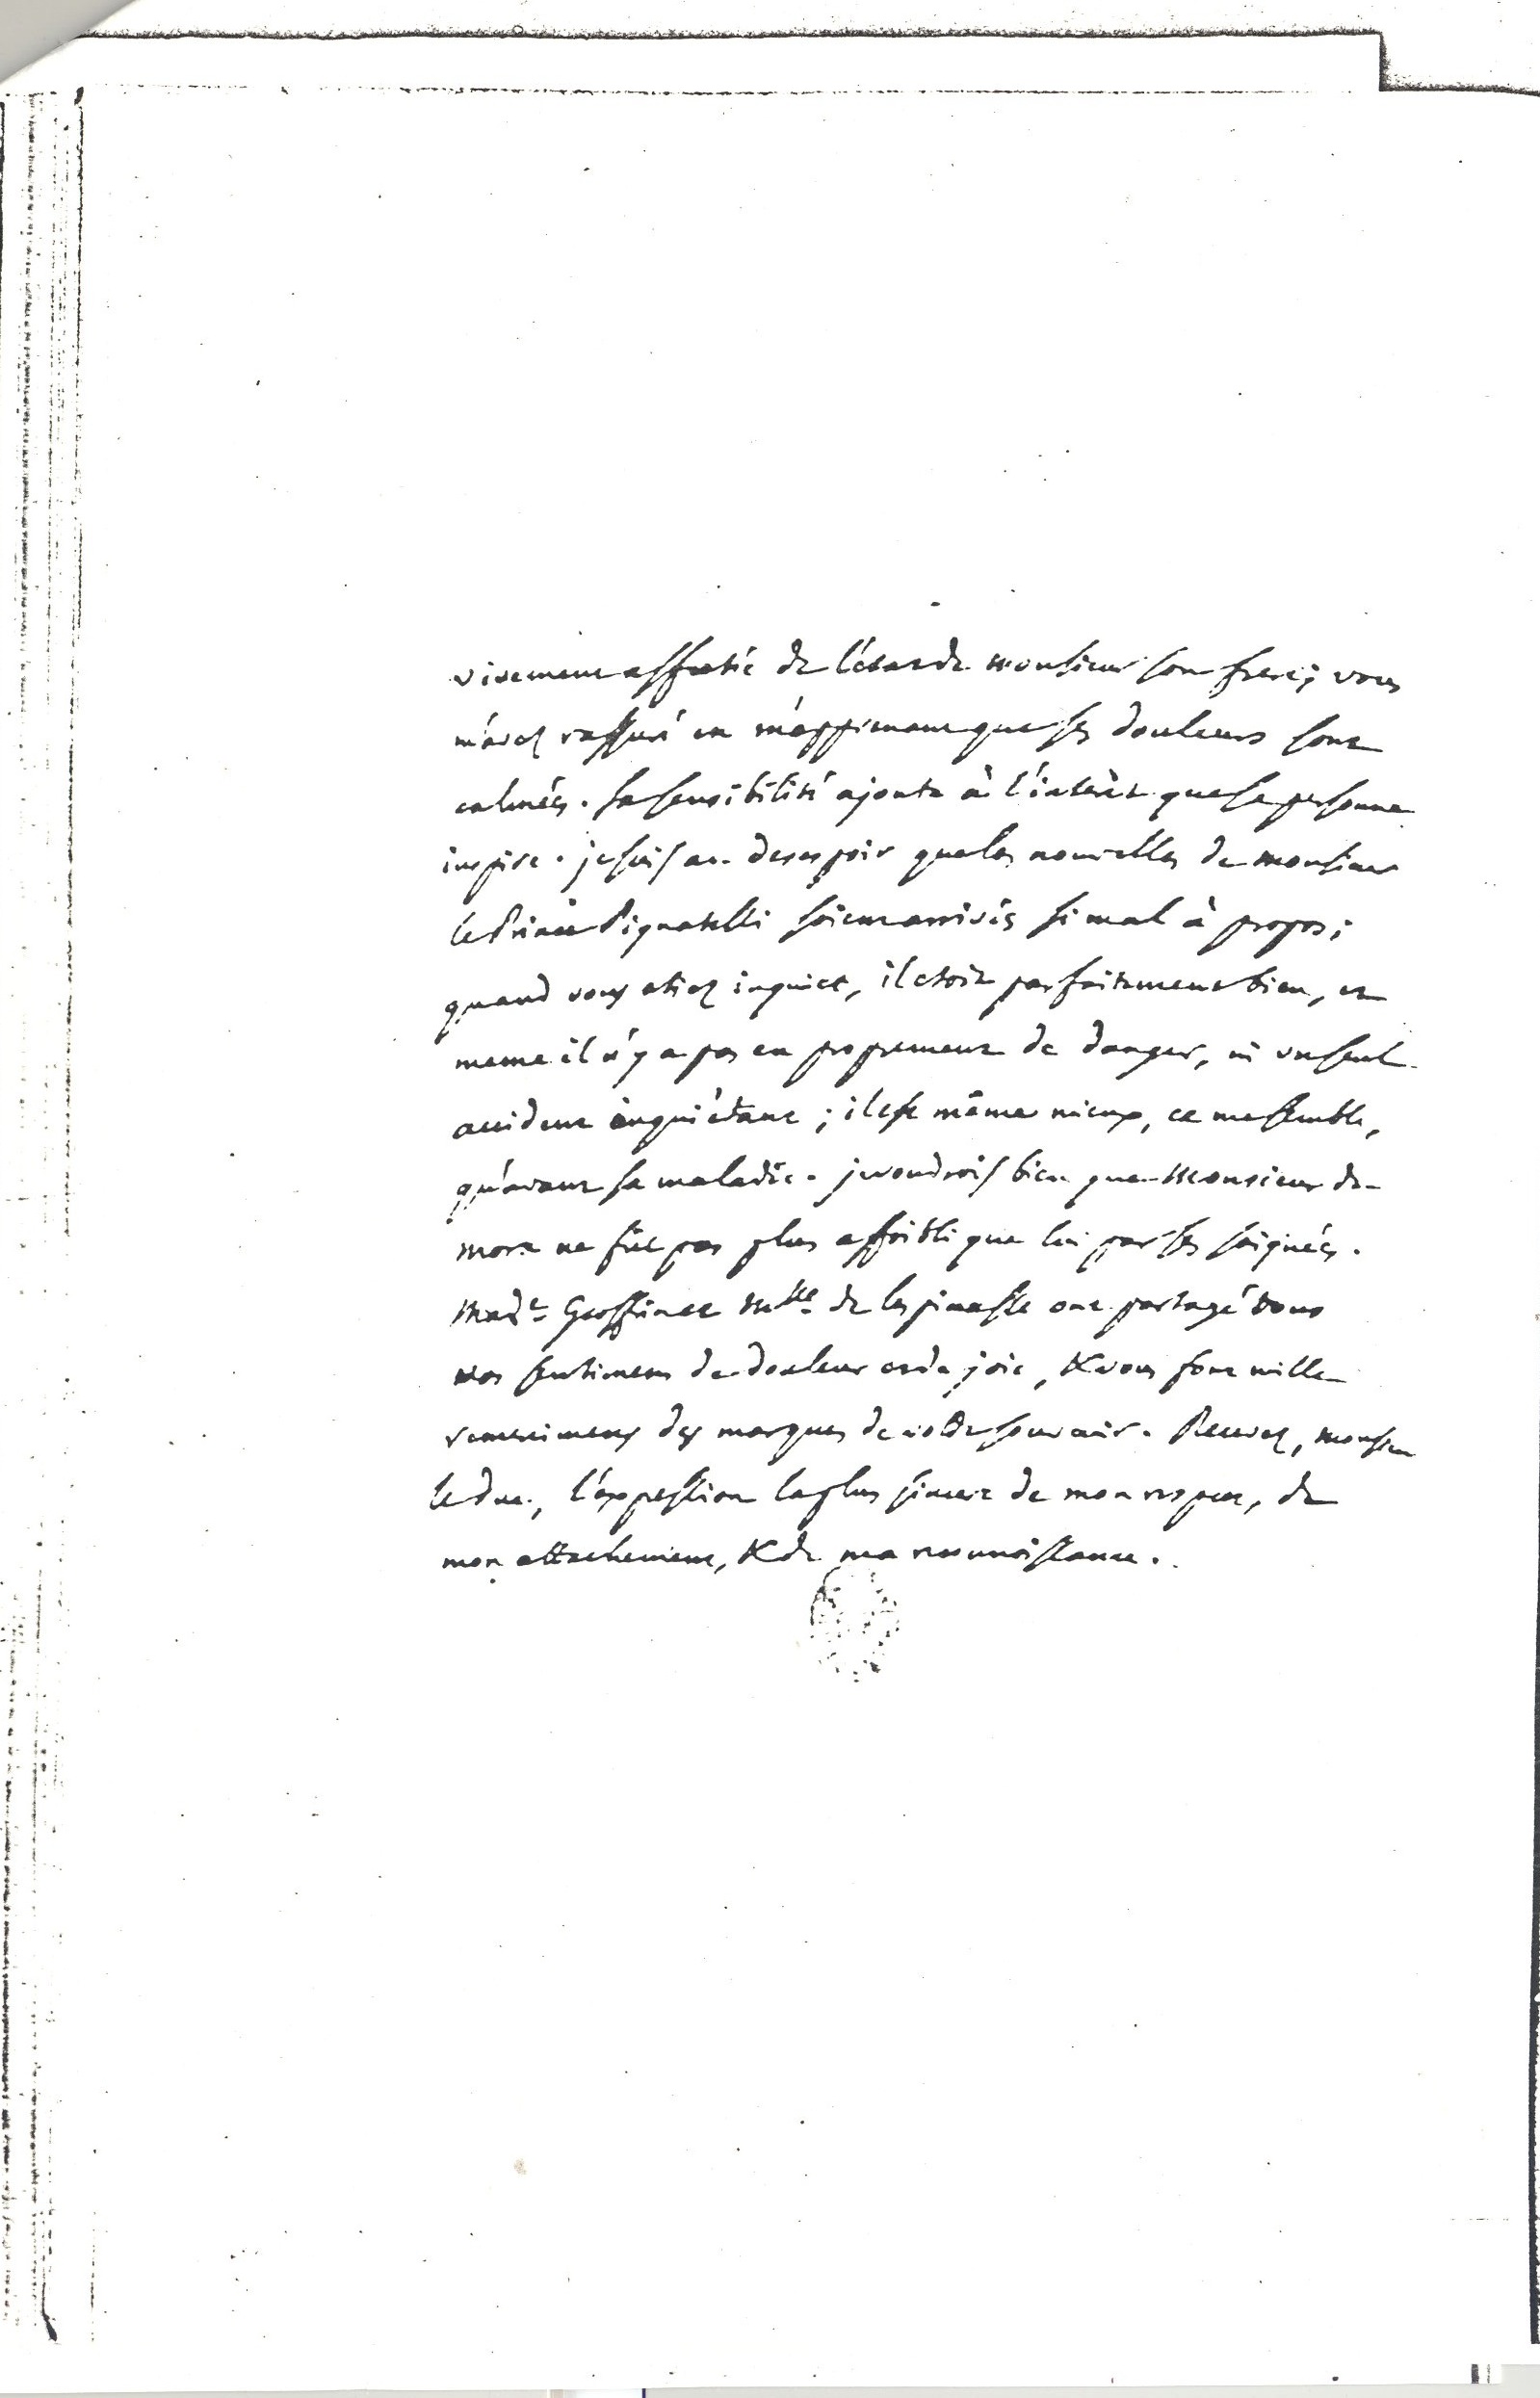 vivement affectée de l'état de monsieur son frere; vous
m'avez rassuré en m'apprenant que ses douleurs sont
calmées. sa sensibilité ajoute à l'intérêt que sa personne
inspire. je suis au desespoir que les nouvelles de monsieur
le Prince Pignatelli soient arrivées si mal à propos;
quand vous etiez inquiet, il etoit parfaitement bien, et
meme il n'y a pas eu proprement de danger, ni un seul
accident inquiétant; il est même mieux, ce me semble,
qu'avant sa maladie. je voudrois bien que Monsieur de
mora ne fût pas plus affoibli que lui par ses saignées.
Made Geoffrin et Mlle de lespinasse ont partagé tous
nos sentimens de douleur et de joie, & vous font mille
remerciemens des marques de votre souvenir. Recevez, monsieur
le duc, l'expression la plus sincere de mon respect, de
mon attachement, & de ma reconnoissance.